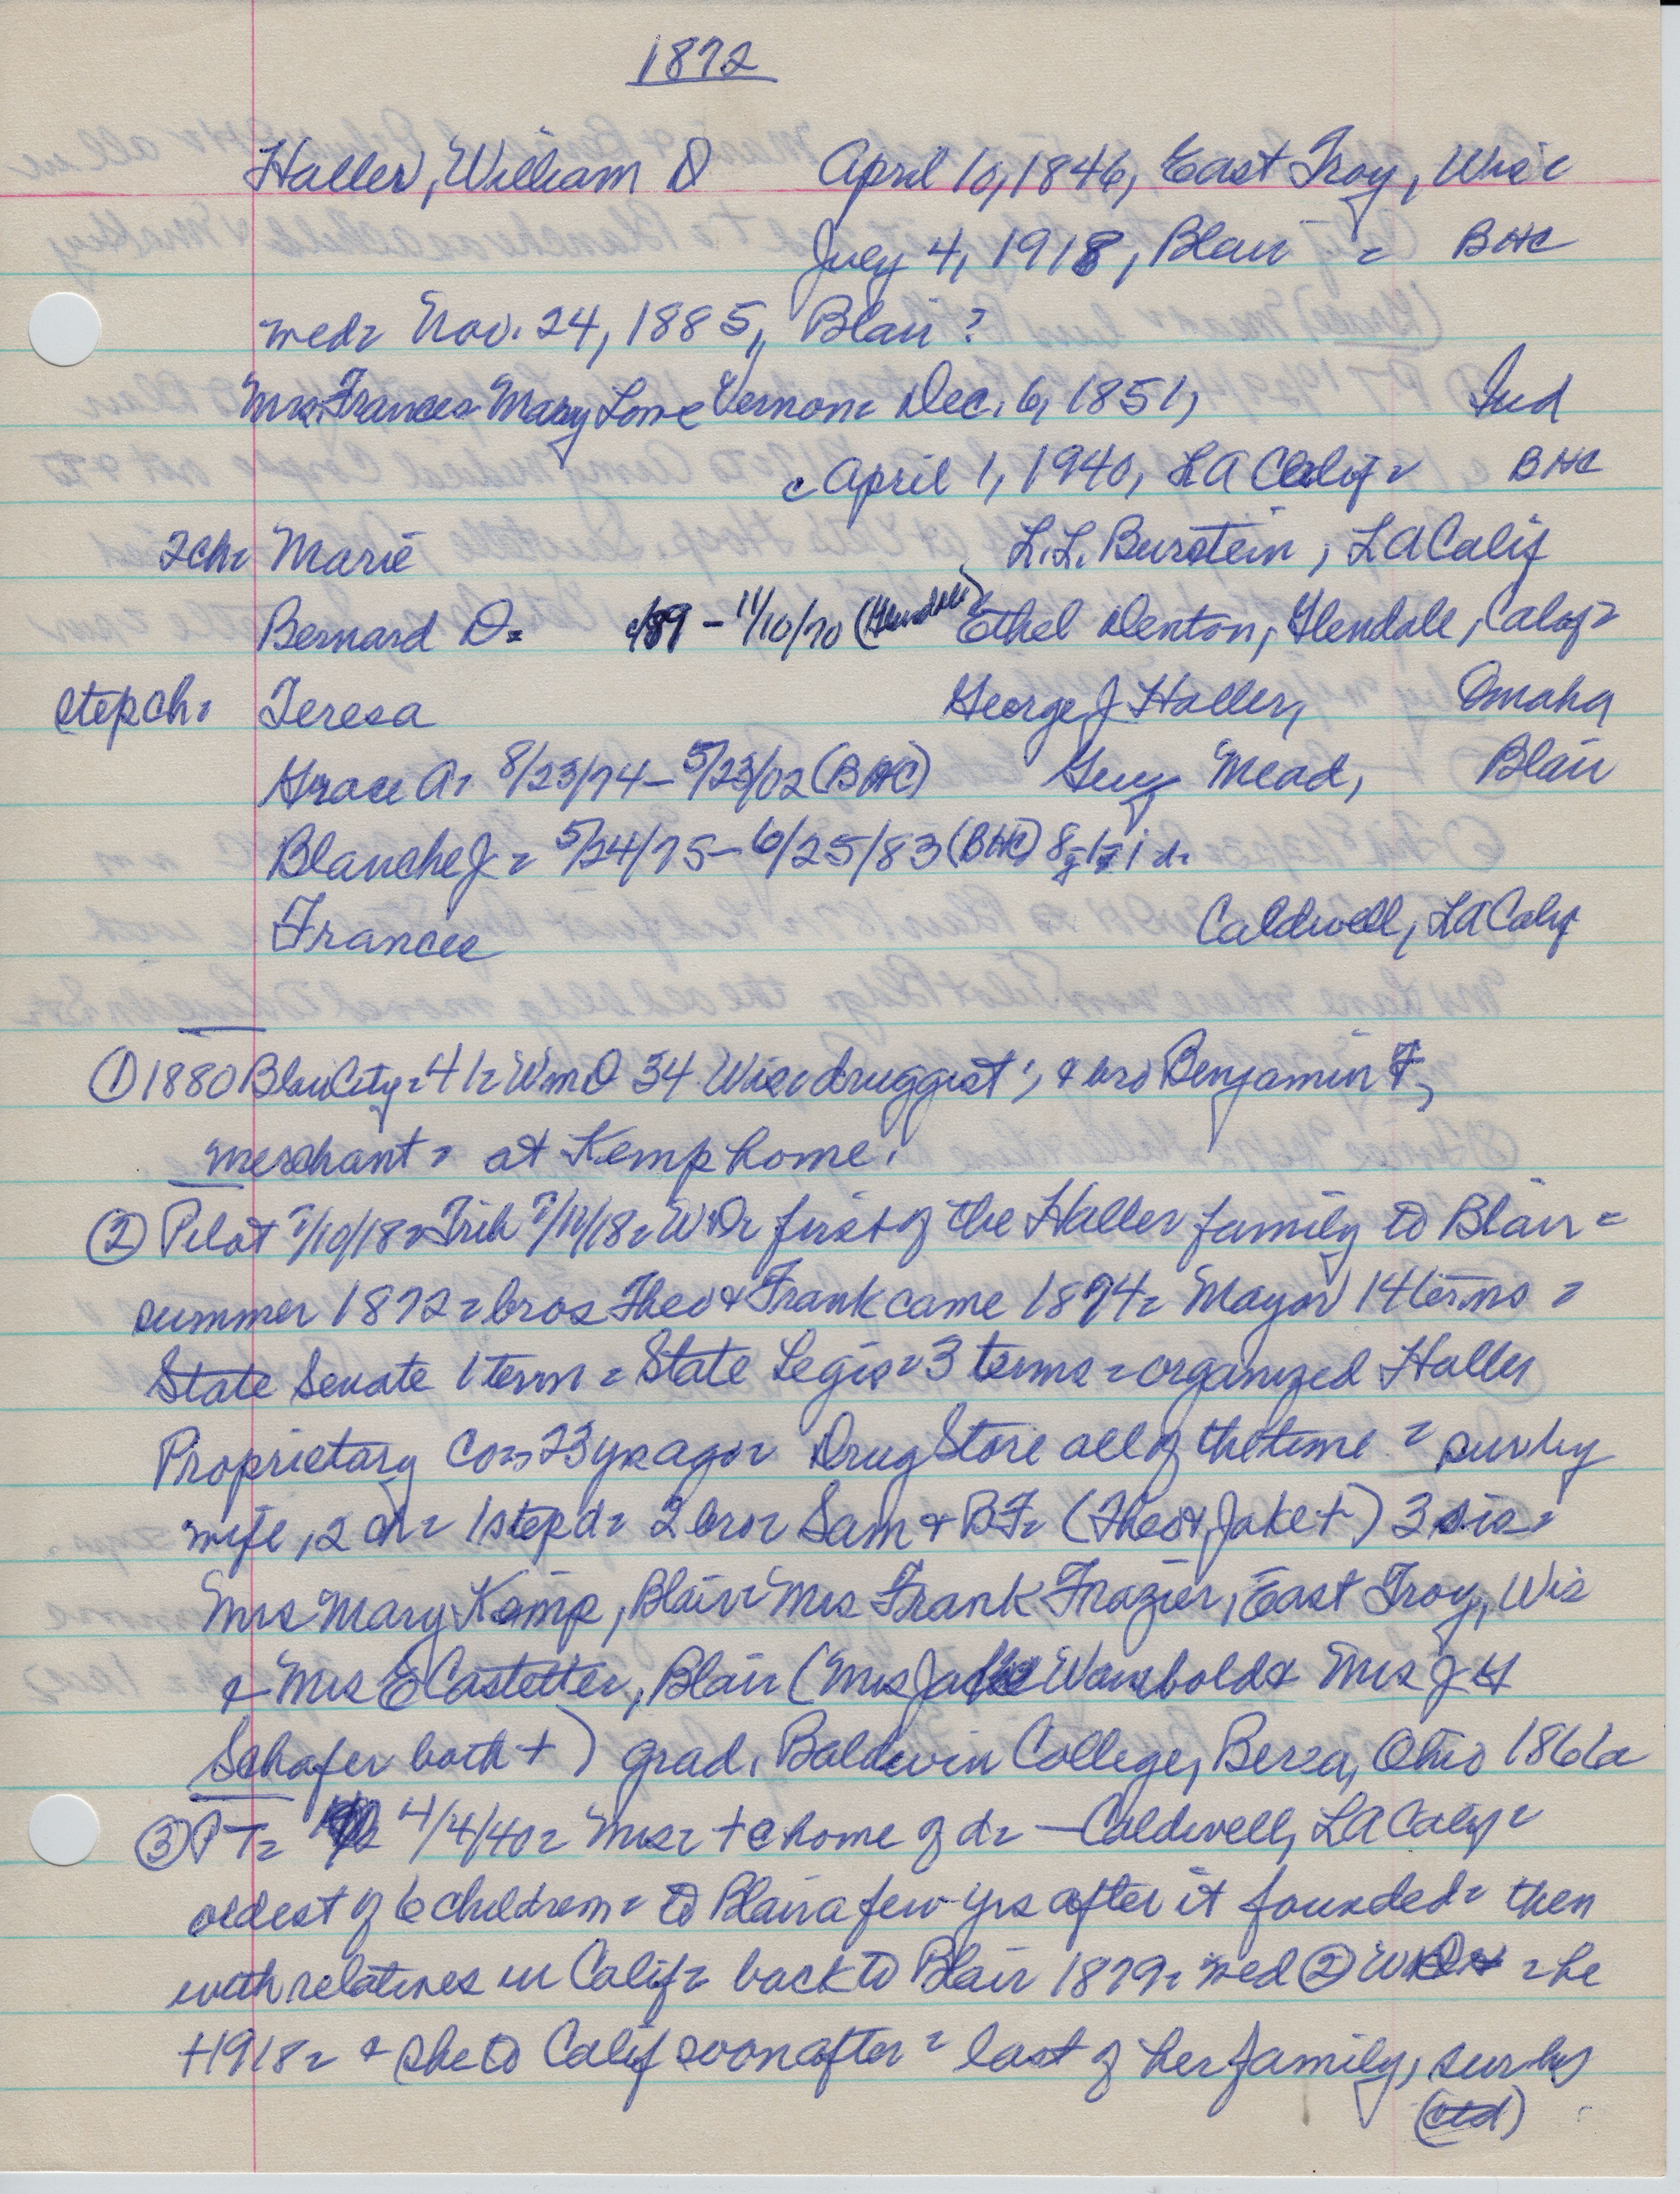 1872
Haller, William D April 10, 1846, East Troy, Wisc
July 4, 1918, Blair = BHC
med= Nov. 24, 1885, Blair?
Mrs. Frances Mary Lane Vernon= Dec. 6, 1851, Ind
c April 1, 1940, LA Calif= BHC
2ch= Marie L.L. Burstein, LA Calif
Bernard D= c/89 - 11/10/70 (Glendale) Ethel Denton, Glendale, Calif=
step ch= Teresa George J Haller, Omaha
Grace A= 8/23/74 - 5/23/02 (BHC) Guy Mead, Blair
Blanche J= 5/24/75 - 6/25/83 (BHC) 8y 1m 1d.
Frances Caldwell, LA Calif
① 1880 Blair City= 41= Wm D 34 Wisc druggist; & bro Benjamin F,
merchant= at Kemp home.
② Pilot 7/10/18= Trib 7/11/18= WD= first of the Haller family to Blair=
summer 1872= bros Theo & Frank came 1874= Mayor 14 terms=
State Senate 1 term= State Legis= 3 terms= organized Haller
Proprietary Co= 23 yrs ago= Drug Store all of the time= surv by
wife, 2 ch= 1 step d= 2 bro= Sam & BF= (Theo & Jake +) 3 sis=
Mrs Mary Kemp, Blair= Mrs Frank Frazier, East Troy, Wis
& Mrs E Castetter, Blair (Mrs Jake Wambold & Mrs J H
Schafer both +) grad. Baldwin College, Berea, Ohio 1861
③ PT= 4/4/40= Mrs= + @ home of d= - Caldwell, LA Calif=
oldest of 6 children= to Blair a few yrs after it founded= then
with relatives in Calif= back to Blair 1879= med ② WDH= he
+ 1918= & she to Calif soon after= last of her family, surv by
(ctd)